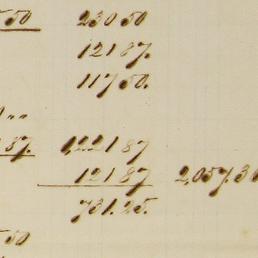 50 230 50
121 87.
117 50.
" "
87. 1,221 87
121 87 2,057.3
731.25.
50